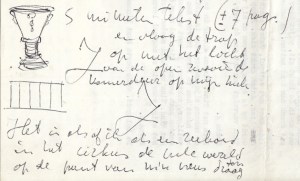 5 minuten tekst (± 7 pag.)
en vloog de trap
op met het
van de open
kamerdeur op mijn
Het is alsof ik als een zeehond
in het cirkus de hele wereld
op de punt van mijn neus draag